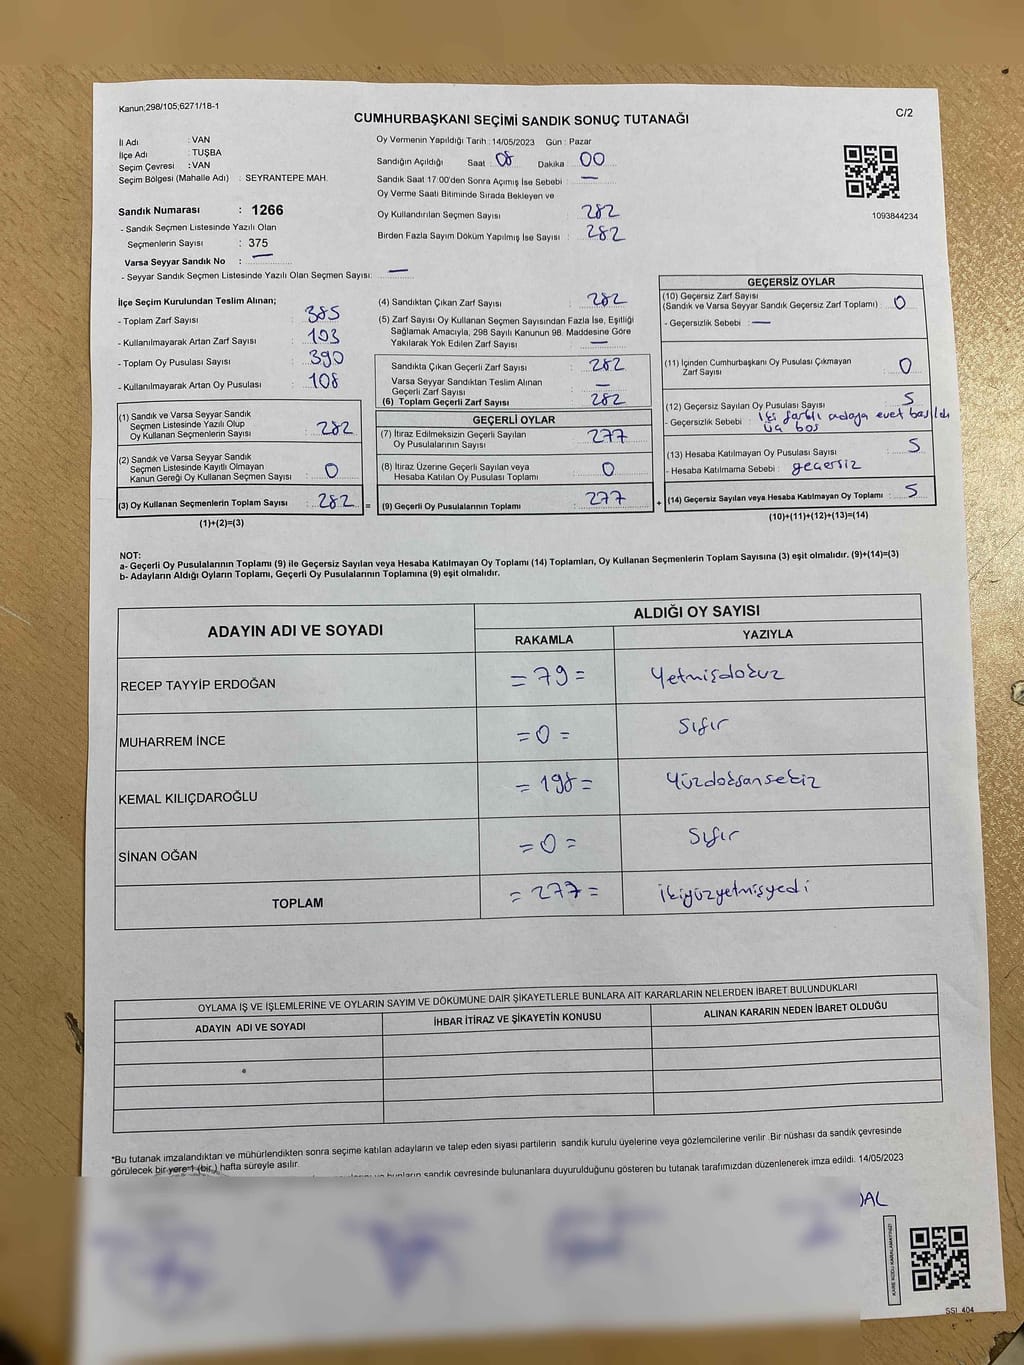 Kanun;298/105;6271/18-1
C/2
CUMHURBAŞKANI SEÇİMİ SANDIK SONUÇ TUTANAĞI
İl Adı : VAN
İlçe Adı : TUŞBA
Seçim Çevresi : VAN
Seçim Bölgesi (Mahalle Adı) : SEYRANTEPE MAH.
Sandık Numarası : 1266
- Sandık Seçmen Listesinde Yazılı Olan
Seçmenlerin Sayısı : 375
Varsa Seyyar Sandık No : —
- Seyyar Sandık Seçmen Listesinde Yazılı Olan Seçmen Sayısı: —
Oy Vermenin Yapıldığı Tarih : 14/05/2023 Gün : Pazar
Sandığın Açıldığı Saat : 08 Dakika : 00
Sandık Saat 17:00'den Sonra Açımış İse Sebebi : —
Oy Verme Saati Bitiminde Sırada Bekleyen ve
Oy Kullandırılan Seçmen Sayısı : 282
Birden Fazla Sayım Döküm Yapılmış İse Sayısı : 282
1093844234
İlçe Seçim Kurulundan Teslim Alınan;
- Toplam Zarf Sayısı : 385
- Kullanılmayarak Artan Zarf Sayısı : 103
- Toplam Oy Pusulası Sayısı : 390
- Kullanılmayarak Artan Oy Pusulası : 108
(1) Sandık ve Varsa Seyyar Sandık
Seçmen Listesinde Yazılı Olup
Oy Kullanan Seçmenlerin Sayısı : 282
(2) Sandık ve Varsa Seyyar Sandık
Seçmen Listesinde Kayıtlı Olmayan
Kanun Gereği Oy Kullanan Seçmen Sayısı : 0
(3) Oy Kullanan Seçmenlerin Toplam Sayısı : 282 =
(1)+(2)=(3)
(4) Sandıktan Çıkan Zarf Sayısı : 282
(5) Zarf Sayısı Oy Kullanan Seçmen Sayısından Fazla İse, Eşitliği
Sağlamak Amacıyla, 298 Sayılı Kanunun 98. Maddesine Göre
Yakılarak Yok Edilen Zarf Sayısı : —
Sandıkta Çıkan Geçerli Zarf Sayısı : 282
Varsa Seyyar Sandıktan Teslim Alınan
Geçerli Zarf Sayısı : —
(6) Toplam Geçerli Zarf Sayısı : 282
GEÇERLİ OYLAR
(7) İtiraz Edilmeksizin Geçerli Sayılan
Oy Pusulalarının Sayısı : 277
(8) İtiraz Üzerine Geçerli Sayılan veya
Hesaba Katılan Oy Pusulası Toplamı : 0
(9) Geçerli Oy Pusulalarının Toplamı : 277 +
GEÇERSİZ OYLAR
(10) Geçersiz Zarf Sayısı
(Sandık ve Varsa Seyyar Sandık Geçersiz Zarf Toplamı) : 0
- Geçersizlik Sebebi : —
(11) İçinden Cumhurbaşkanı Oy Pusulası Çıkmayan
Zarf Sayısı : 0
(12) Geçersiz Sayılan Oy Pusulası Sayısı : 5
- Geçersizlik Sebebi : iki farklı adaya evet basıldı
üç boş
(13) Hesaba Katılmayan Oy Pusulası Sayısı : 5
- Hesaba Katılmama Sebebi : geçersiz
(14) Geçersiz Sayılan veya Hesaba Katılmayan Oy Toplamı : 5
(10)+(11)+(12)+(13)=(14)
NOT:
a- Geçerli Oy Pusulalarının Toplamı (9) ile Geçersiz Sayılan veya Hesaba Katılmayan Oy Toplamı (14) Toplamları, Oy Kullanan Seçmenlerin Toplam Sayısına (3) eşit olmalıdır. (9)+(14)=(3)
b- Adayların Aldığı Oyların Toplamı, Geçerli Oy Pusulalarının Toplamına (9) eşit olmalıdır.
ADAYIN ADI VE SOYADI
ALDIĞI OY SAYISI
RAKAMLA YAZIYLA
RECEP TAYYİP ERDOĞAN = 79 = Yetmişdokuz
MUHARREM İNCE = 0 = Sıfır
KEMAL KILIÇDAROĞLU = 198 = Yüzdoksansekiz
SİNAN OĞAN = 0 = Sıfır
TOPLAM = 277 = İkiyüzyetmişyedi
OYLAMA İŞ VE İŞLEMLERİNE VE OYLARIN SAYIM VE DÖKÜMÜNE DAİR ŞİKAYETLERLE BUNLARA AİT KARARLARIN NELERDEN İBARET BULUNDUKLARI
ADAYIN ADI VE SOYADI İHBAR İTİRAZ VE ŞİKAYETİN KONUSU ALINAN KARARIN NEDEN İBARET OLDUĞU
*Bu tutanak imzalandıktan ve mühürlendikten sonra seçime katılan adayların ve talep eden siyasi partilerin sandık kurulu üyelerine veya gözlemcilerine verilir. Bir nüshası da sandık çevresinde
görülecek bir yere 1 (bir ) hafta süreyle asılır.
sandık çevresinde bulunanlara duyurulduğunu gösteren bu tutanak tarafımızdan düzenlenerek imza edildi. 14/05/2023
KARE KODU KARALAMAYINIZ!
SSI_404